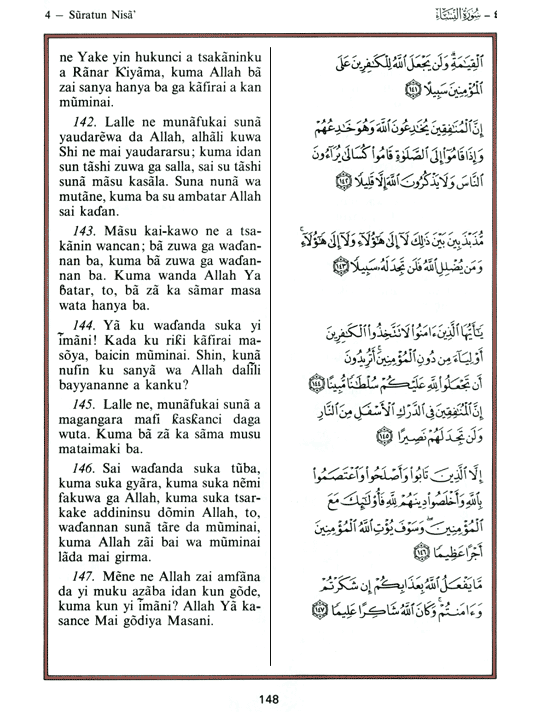 4 – Sūratun Nisā'
سُورَةُ النِّسَاءِ – ٤
ne Yake yin hukunci a tsakāninku
a Rānar Ƙiyāma, kuma Allah bā
zai sanya hanya ba ga kāfirai a kan
mūminai.
142. Lalle ne munāfukai sunā
yaudarẽwa da Allah, alhāli kuwa
Shi ne mai yaudararsu; kuma idan
sun tāshi zuwa ga salla, sai su tāshi
sunā māsu kasāla. Suna nunā wa
mutāne, kuma ba su ambatar Allah
sai kaɗan.
143. Māsu kai-kawo ne a tsa-
kānin wancan; bā zuwa ga waɗan-
nan ba, kuma bā zuwa ga waɗan-
nan ba. Kuma wanda Allah Ya
ɓatar, to, bā zā ka sāmar masa
wata hanya ba.
144. Yā ku waɗanda suka yi
ĩmāni! Kada ku riƙi kāfirai ma-
sōya, baicin mūminai. Shin, kunā
nufin ku sanyā wa Allah dalīli
bayyananne a kanku?
145. Lalle ne, munāfukai sunā a
magangara mafi ƙasƙanci daga
wuta. Kuma bā zā ka sāma musu
mataimaki ba.
146. Sai waɗanda suka tūba,
kuma suka gyāra, kuma suka nẽmi
fakuwa ga Allah, kuma suka tsar-
kake addininsu dōmin Allah, to,
waɗannan sunā tāre da mūminai,
kuma Allah zāi bai wa mūminai
lāda mai girma.
147. Mẽne ne Allah zai amfāna
da yi muku azāba idan kun gōde,
kuma kun yi ĩmāni? Allah Yā ka-
sance Mai gōdiya Masani.
الْقِيَامَةِ وَلَن يَجْعَلَ اللَّهُ لِلْكَافِرِينَ عَلَى
الْمُؤْمِنِينَ سَبِيلًا ١٤١
إِنَّ الْمُنَافِقِينَ يُخَادِعُونَ اللَّهَ وَهُوَ خَادِعُهُمْ
وَإِذَا قَامُوا إِلَى الصَّلَوٰةِ قَامُوا كُسَالَىٰ يُرَاءُونَ
النَّاسَ وَلَا يَذْكُرُونَ اللَّهَ إِلَّا قَلِيلًا ١٤٢
مُّذَبْذَبِينَ بَيْنَ ذَٰلِكَ لَا إِلَىٰ هَٰؤُلَاءِ وَلَا إِلَىٰ هَٰؤُلَاءِ
وَمَن يُضْلِلِ اللَّهُ فَلَن تَجِدَ لَهُ سَبِيلًا ١٤٣
يَا أَيُّهَا الَّذِينَ ءَامَنُوا لَا تَتَّخِذُوا الْكَافِرِينَ
أَوْلِيَاءَ مِن دُونِ الْمُؤْمِنِينَ أَتُرِيدُونَ
أَن تَجْعَلُوا لِلَّهِ عَلَيْكُمْ سُلْطَانًا مُّبِينًا ١٤٤
إِنَّ الْمُنَافِقِينَ فِي الدَّرْكِ الْأَسْفَلِ مِنَ النَّارِ
وَلَن تَجِدَ لَهُمْ نَصِيرًا ١٤٥
إِلَّا الَّذِينَ تَابُوا وَأَصْلَحُوا وَاعْتَصَمُوا
بِاللَّهِ وَأَخْلَصُوا دِينَهُمْ لِلَّهِ فَأُولَٰئِكَ مَعَ
الْمُؤْمِنِينَ وَسَوْفَ يُؤْتِ اللَّهُ الْمُؤْمِنِينَ
أَجْرًا عَظِيمًا ١٤٦
مَّا يَفْعَلُ اللَّهُ بِعَذَابِكُمْ إِن شَكَرْتُمْ
وَءَامَنتُمْ وَكَانَ اللَّهُ شَاكِرًا عَلِيمًا ١٤٧
148